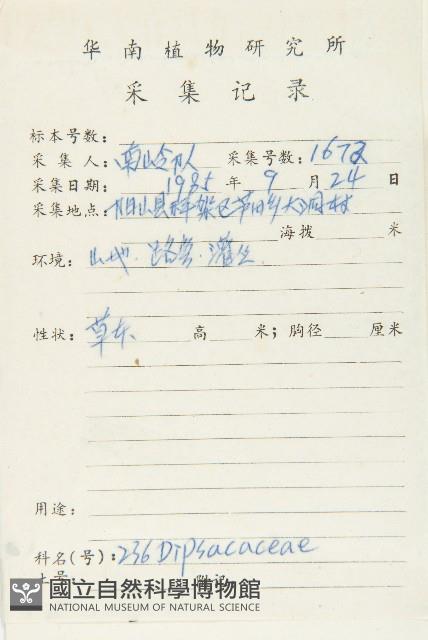 华南植物研究所
采集记录
标本号数：
采集人：南岭队 采集号数：1672
采集日期：1985 年 9 月 24 日
采集地点：阳山县秤架区芦田乡大洞村
海拨 米
环境：山地．路旁．灌丛
性状：草本 高 米；胸径 厘米
用途：
科名(号)：236 Dipsacaceae
國立自然科學博物館
NATIONAL MUSEUM OF NATURAL SCIENCE